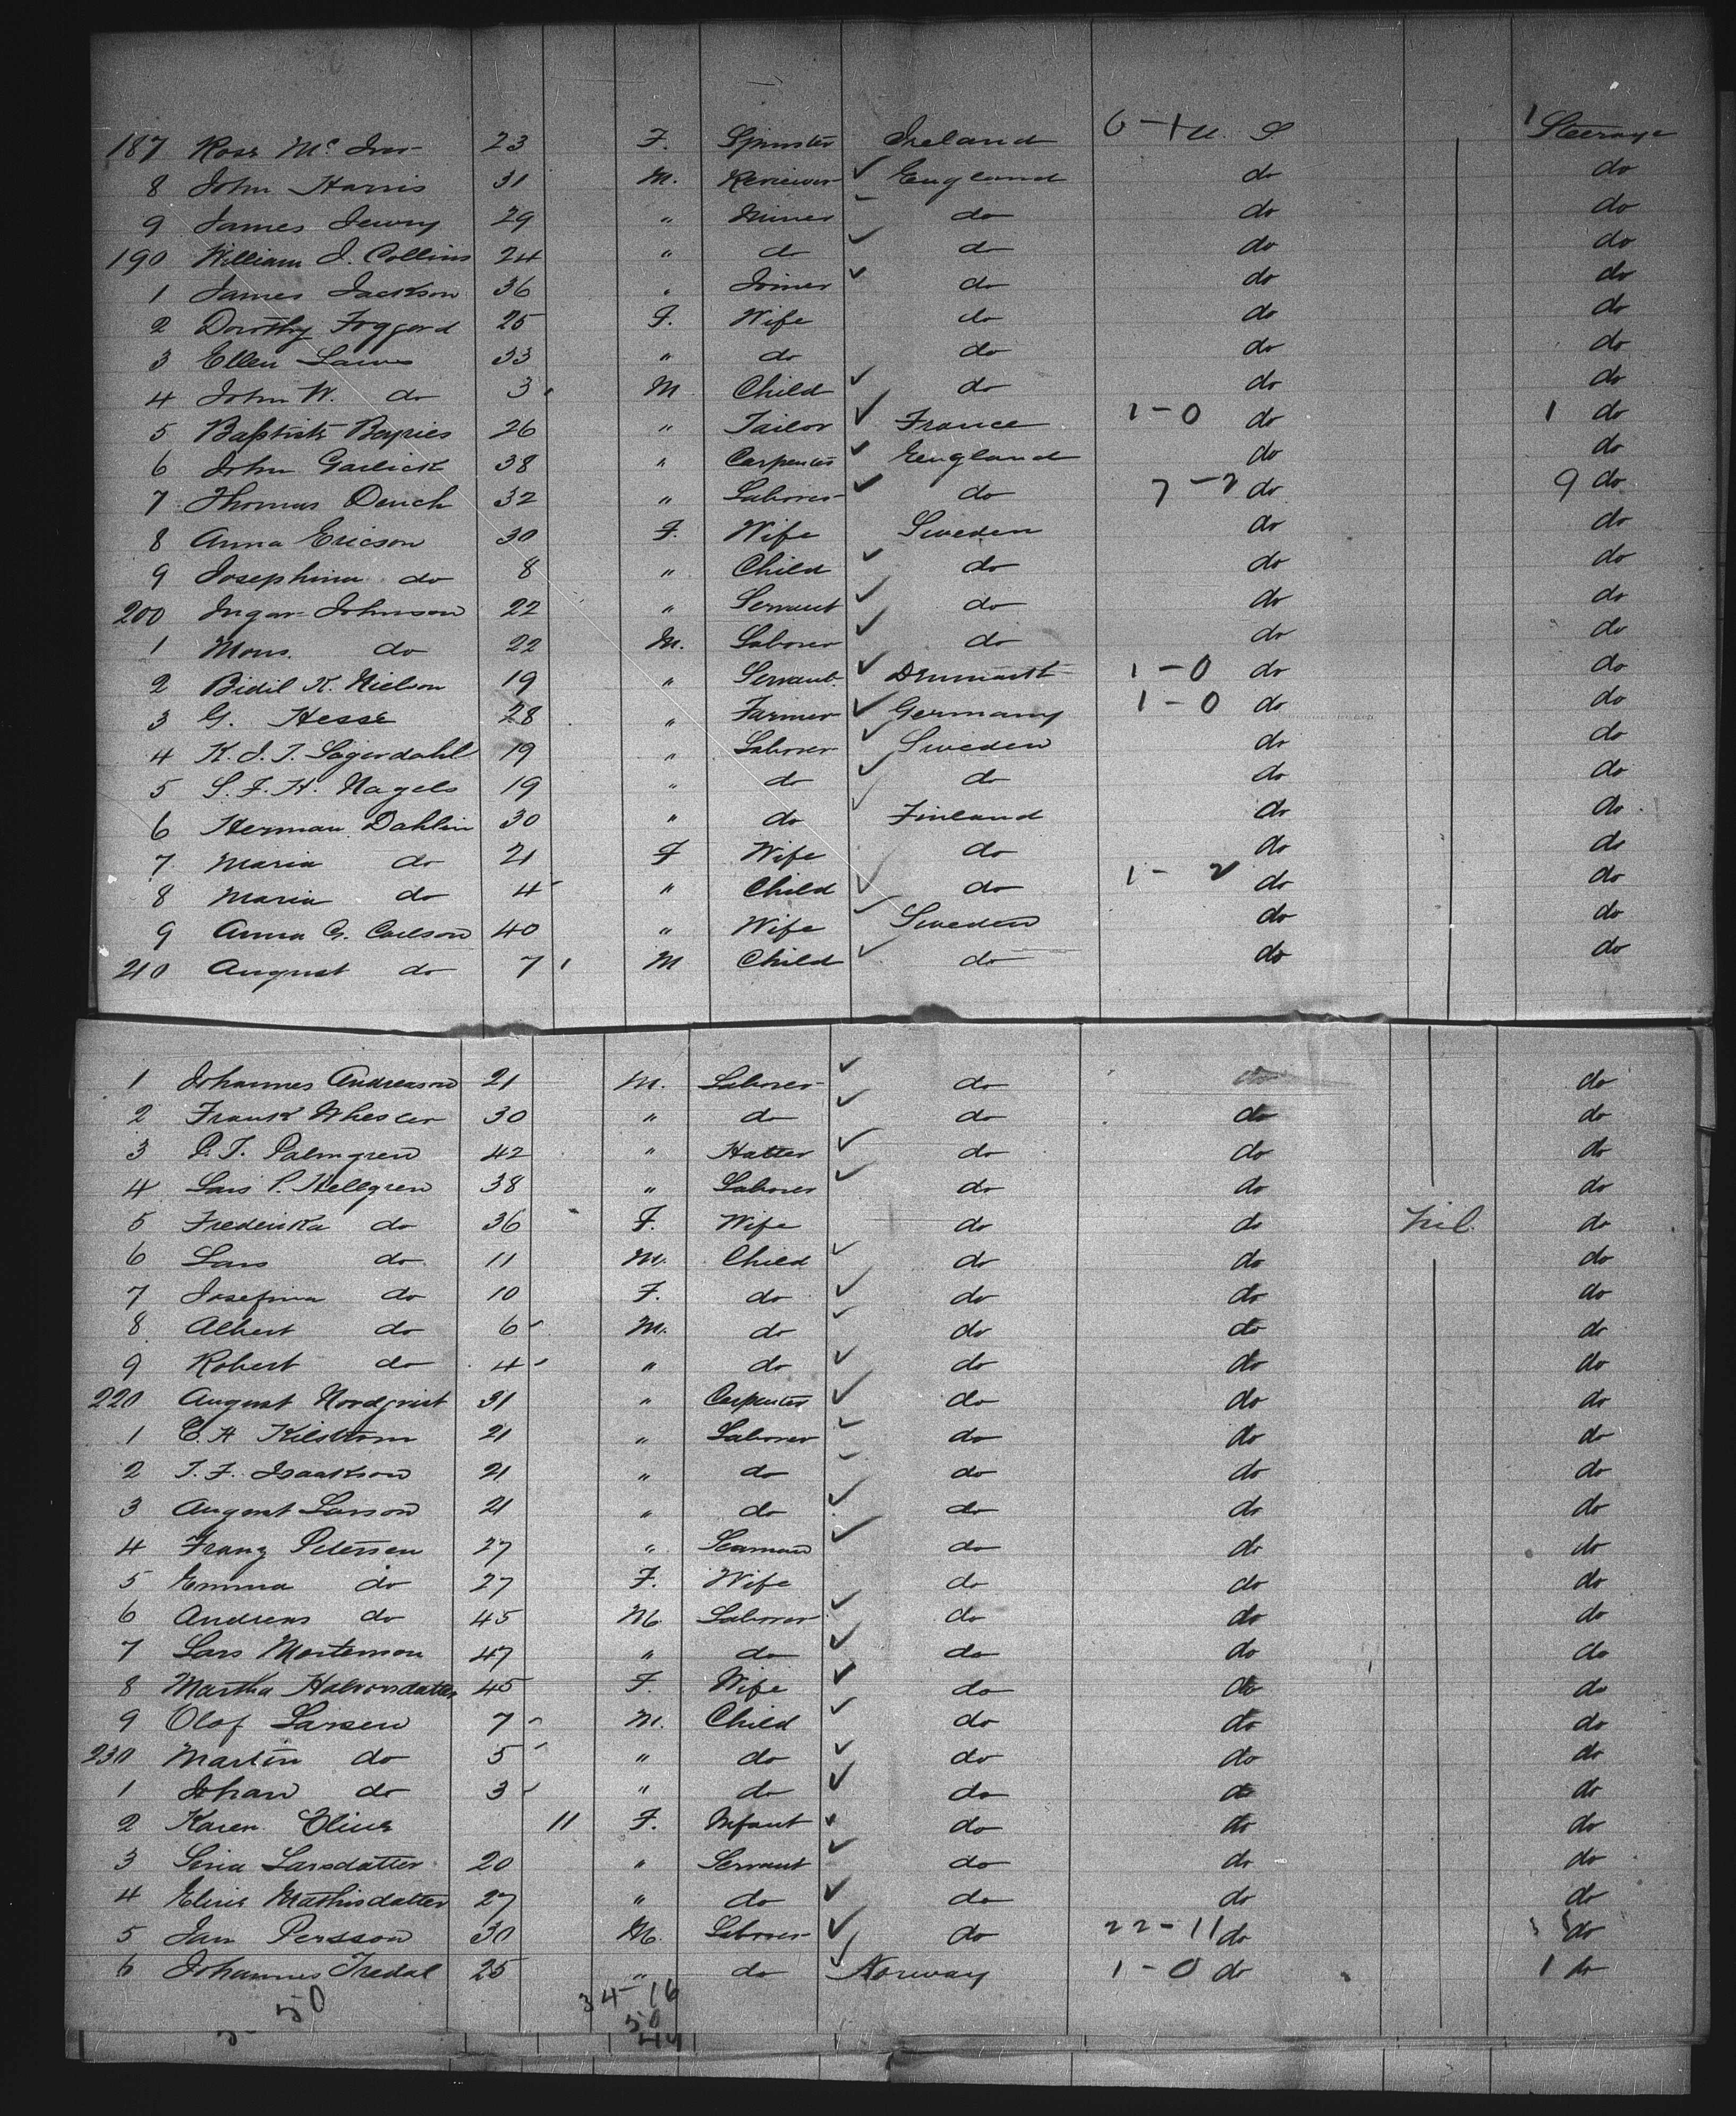 187 Rose Mc Iver 23 F. Spinster Ireland 6-1 U. S 1 Steerage
8 John Harris 31 M. Reviewer ✓ England do do
9 James Jewry 29 " Miner do do do
190 William J. Collins 24 " do ✓ do do do
1 James Jackson 36 " Joiner ✓ do do do
2 Dorothy Foggard 25 F. Wife do do do
3 Ellen Laws 33 " do do do do
4 John W. do 3 M Child ✓ do do do
5 Baptiste Bayries 26 " Tailor ✓ France 1-0 do 1 do
6 John Garlick 38 " Carpenter ✓ England do do
7 Thomas Derich 32 " Laborer ✓ do 7-2 do 9 do
8 Anna Ericson 30 F. Wife Sweden do do
9 Josephina do 8 " Child ✓ do do do
200 Ingar Johnson 22 " Servant ✓ do do do
1 Mons. do 22 M. Laborer ✓ do do do
2 Bidil K. Nielson 19 " Servant ✓ Denmark 1-0 do do
3 G. Hesse 28 " Farmer ✓ Germany 1-0 do do
4 K. J. T. Lagerdahl 19 " Laborer ✓ Sweden do do
5 S. F. H. Nagels 19 " do ✓ do do do
6 Herman Dahlin 30 " do ✓ Finland do do
7 Maria do 21 F Wife do do do
8 Maria do 4 " Child ✓ do 1-2 do do
9 Anna G. Carlson 40 " Wife Sweden do do
210 August do 7 M Child ✓ do do do
1 Johannes Andreason 21 M. Laborer ✓ do do do
2 Frank Whesler 30 " do ✓ do do do
3 P. T. Palmgren 42 " Hatter ✓ do do do
4 Lars P. Hellgren 38 " Laborer ✓ do do do
5 Frederika do 36 F. Wife do do Nil. do
6 Lars do 11 M. Child ✓ do do do
7 Josefina do 10 F. do ✓ do do do
8 Albert do 6 M. do ✓ do do do
9 Robert do 4 " do ✓ do do do
220 August Nordqvist 31 " Carpenter ✓ do do do
1 C. A Kilstrom 21 " Laborer ✓ do do do
2 T. F. Isaakson 21 " do do do do
3 August Larson 21 " do ✓ do do do
4 Franz Petersen 27 " Seaman ✓ do do do
5 Emma do 27 F. Wife do do do
6 Andreas do 45 M. Laborer ✓ do do do
7 Lars Mortenson 47 " do ✓ do do do
8 Martha Halvorsdatter 45 F. Wife ✓ do do do
9 Olaf Larsen 7 M. Child ✓ do do do
230 Martin do 5 " do ✓ do do do
1 Johan do 3 " do ✓ do do do
2 Karen Oline 11 F. Infant ✓ do do do
3 Lena Larsdatter 20 " Servant ✓ do do do
4 Eline Mathisdatter 27 " do ✓ do do do
5 Jan Persson 30 M. Laborer ✓ do 22-11 do do
6 Johannes Tredal 25 " do ✓ Norway 1-0 do 1 do
50 34-16
50
44